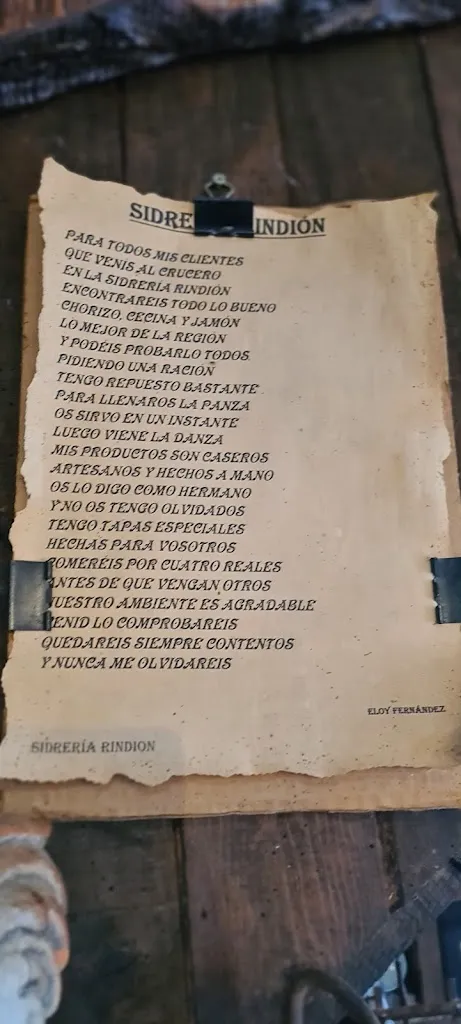 SIDRE INDIÓN
PARA TODOS MIS CLIENTES
QUE VENIS AL CRUCERO
EN LA SIDRERÍA RINDIÓN
ENCONTRAREIS TODO LO BUENO
CHORIZO, CECINA Y JAMÓN
LO MEJOR DE LA REGIÓN
Y PODÉIS PROBARLO TODOS
PIDIENDO UNA RACIÓN
TENGO REPUESTO BASTANTE
PARA LLENAROS LA PANZA
OS SIRVO EN UN INSTANTE
LUEGO VIENE LA DANZA
MIS PRODUCTOS SON CASEROS
ARTESANOS Y HECHOS A MANO
OS LO DIGO COMO HERMANO
Y NO OS TENGO OLVIDADOS
TENGO TAPAS ESPECIALES
HECHAS PARA VOSOTROS
COMERÉIS POR CUATRO REALES
ANTES DE QUE VENGAN OTROS
NUESTRO AMBIENTE ES AGRADABLE
VENID LO COMPROBAREIS
QUEDAREIS SIEMPRE CONTENTOS
Y NUNCA ME OLVIDAREIS
ELOY FERNÁNDEZ
SIDRERÍA RINDION